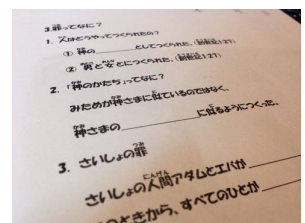 3.罪ってなに？
1. 人はどうやってつくられたの？
① 神の＿＿＿＿＿としてつくられた。(創世記1:27)
② 男と女とにつくられた。(創世記1:27)
2. 「神のかたち」ってなに？
みためが神さまに似ているのではなく、
神さまの＿＿＿＿＿に似るようにつくった。
3. さいしょの罪
さいしょの人間アダムとエバが＿＿＿＿＿
のときから、すべてのひとが